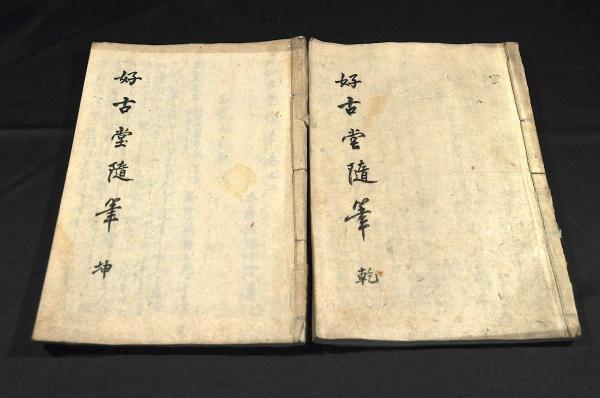 好古堂隨筆 乾
好古堂隨筆 坤